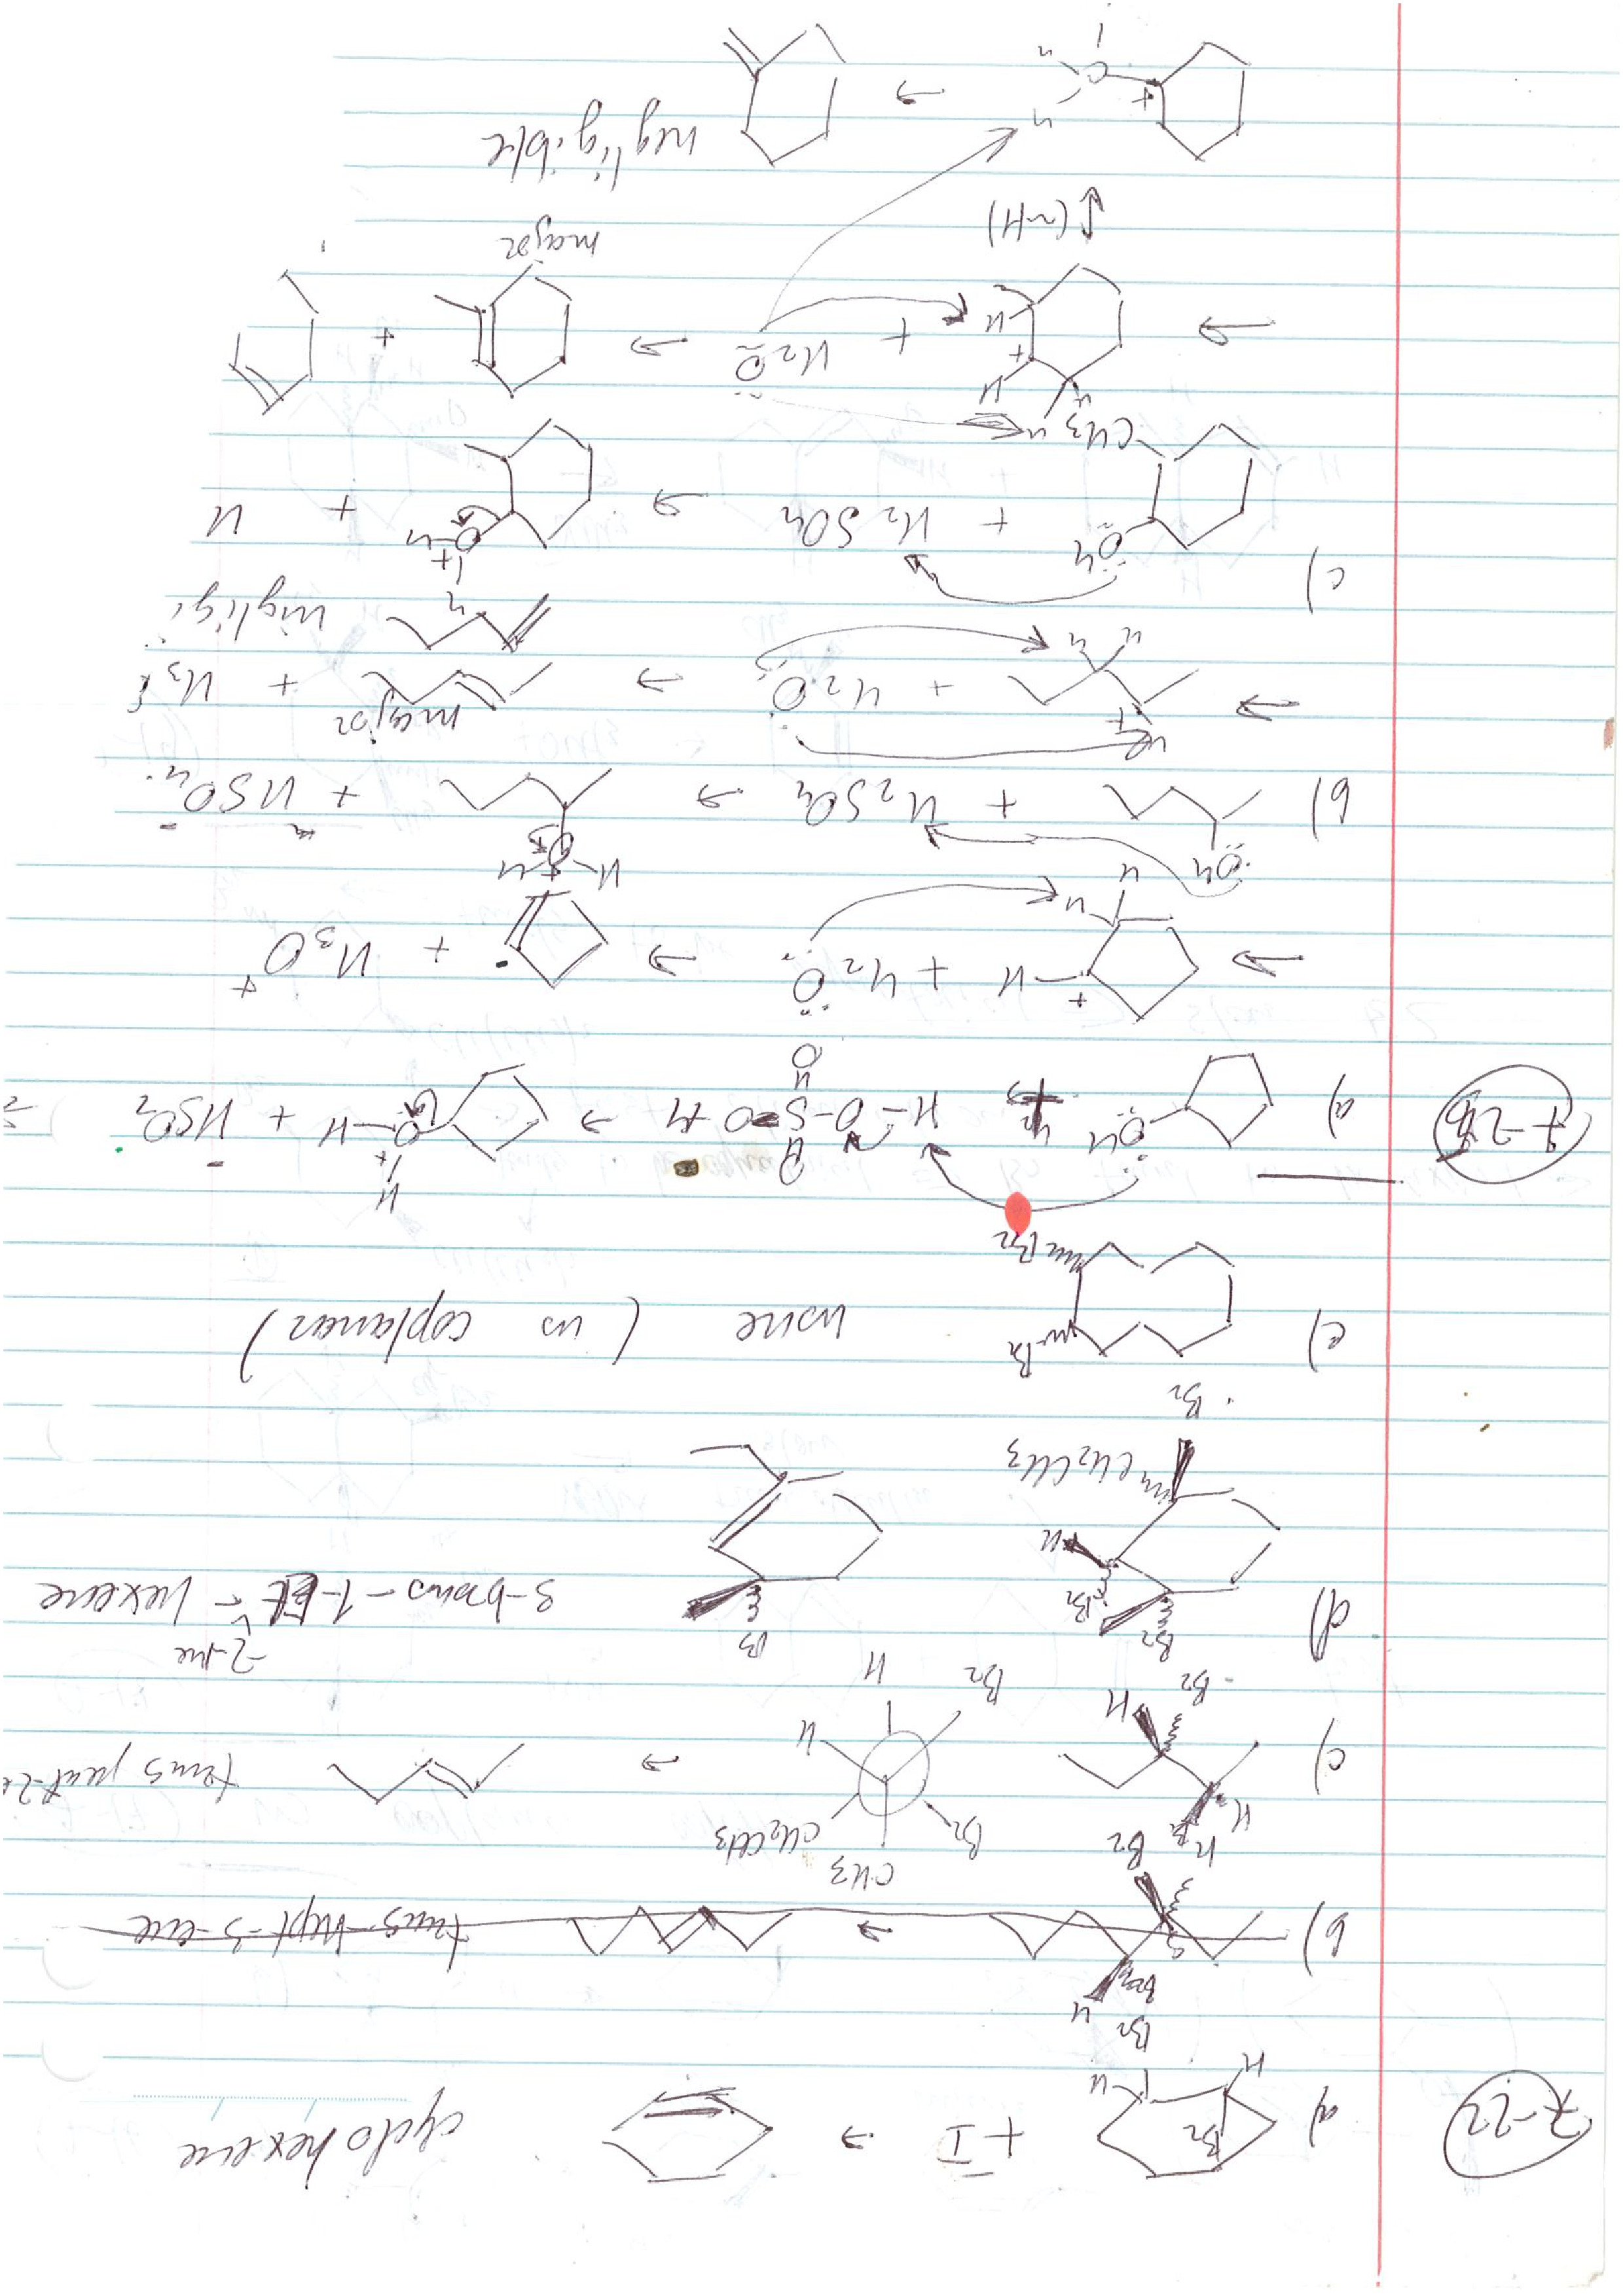 7-22
a) H H Br + I⁻ → cyclohexene
b) H Br Br → trans-hept-3-ene
c) Br H H Br CH3 CH2CH3 Br H H Br → trans pent-2
d) Br Br H CH2CH3 Br 3-bromo-1-Et-2-me-hexene
e) Br Br none (vs coplanar)
7-23
a) OH + H-O-S-O-H → O-H H + + HSO
→ H + H H + H2O → + H3O+
b) OH + H2SO4 → H O-H + + HSO4⁻
→ H + H H + H2O → major + H3
c) OH CH3 + H2SO4 → O-H H + + H
→ H + H + H2O → major +
(~H)
+ C H H → negligible